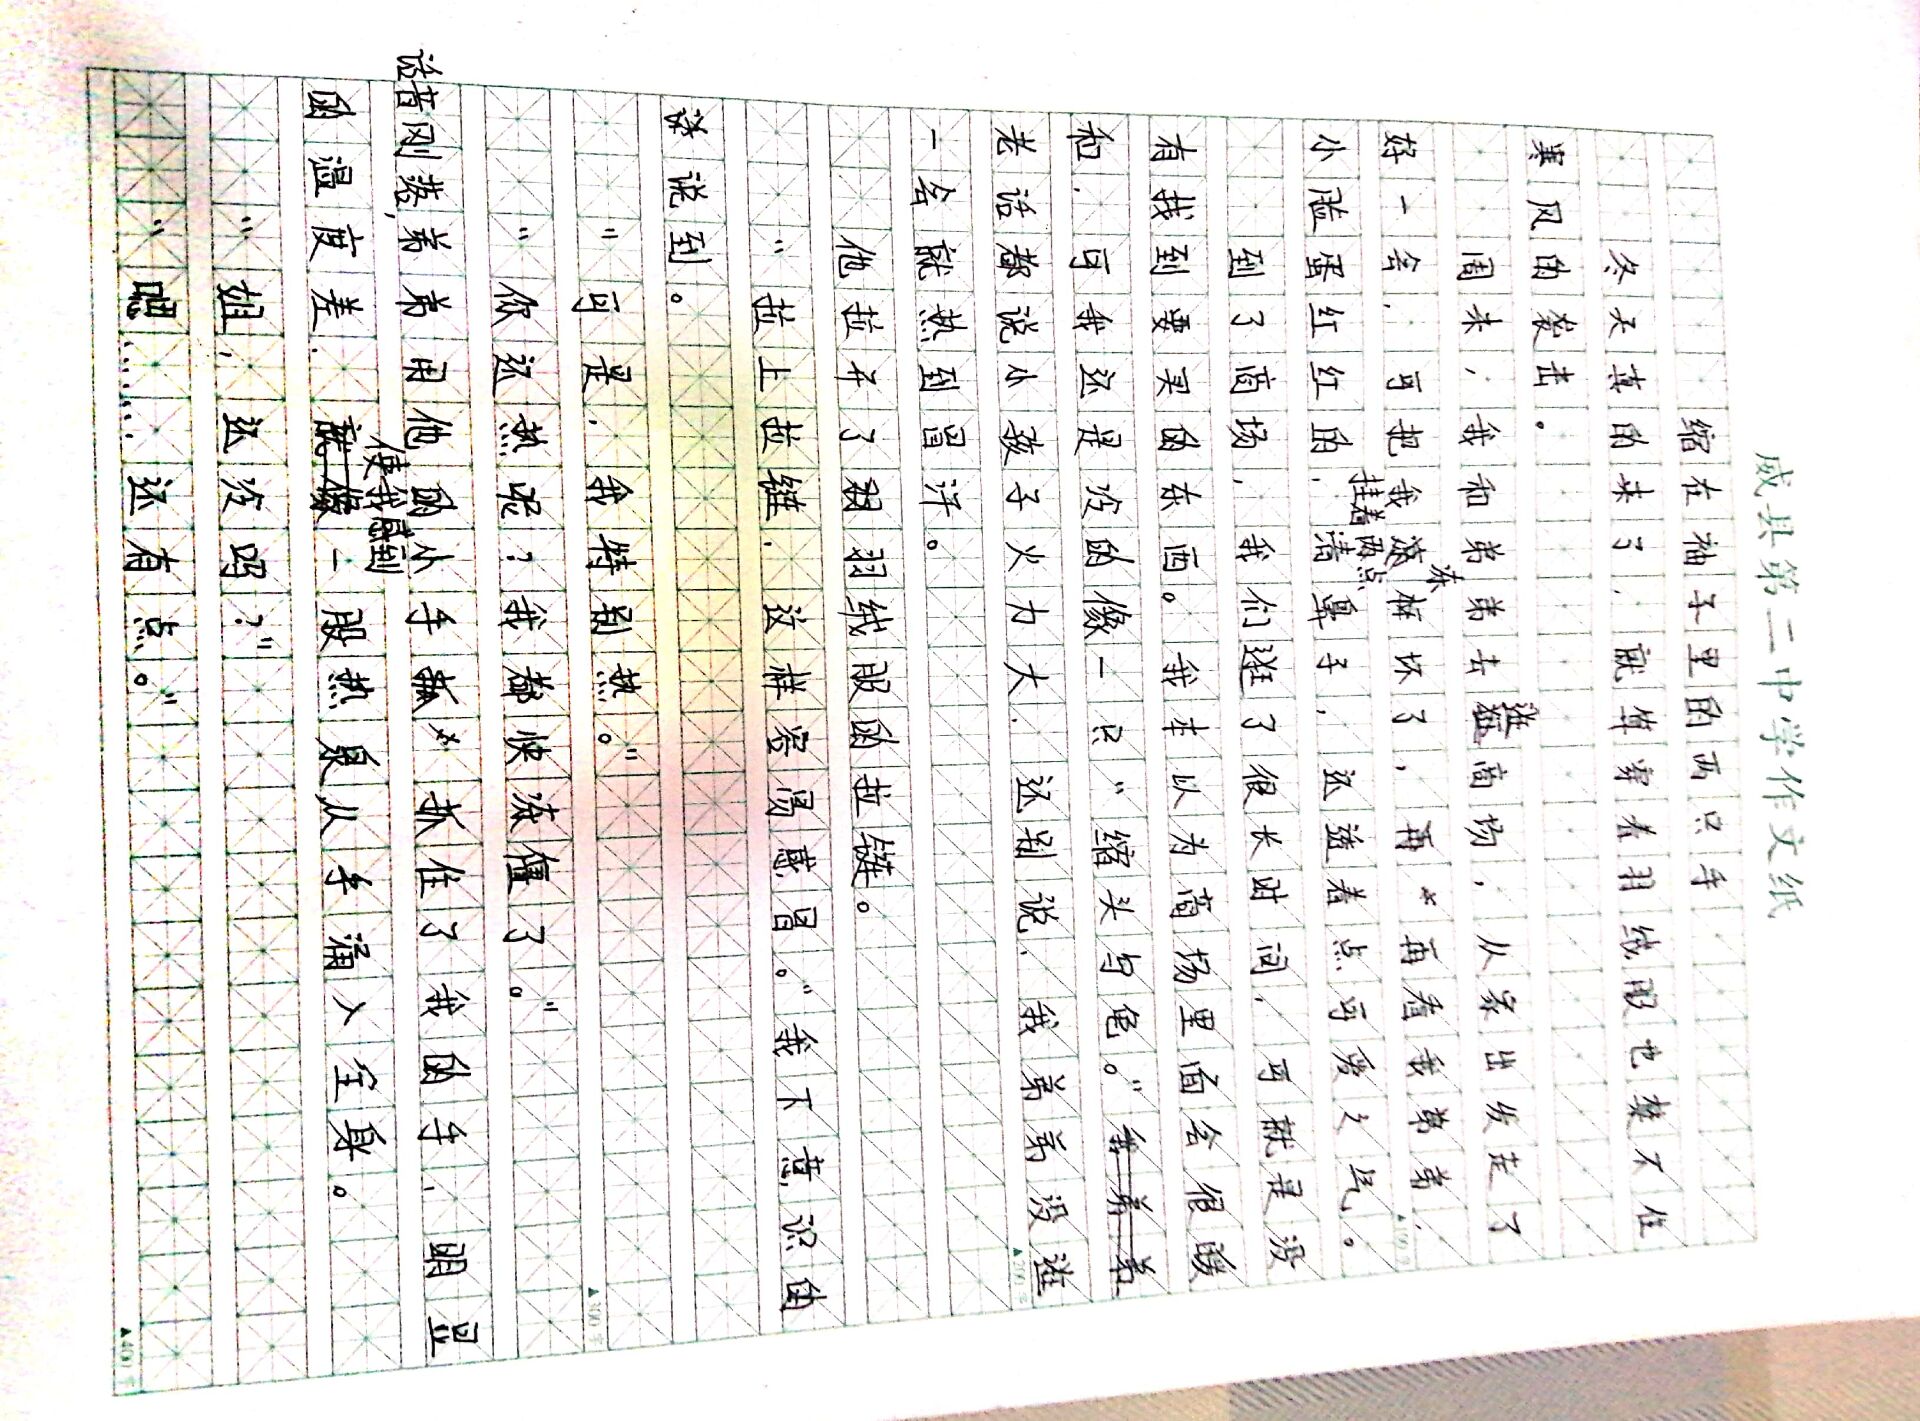 威县第二中学作文纸
缩在袖子里的两只手
冬天真的来了，就算穿着羽绒服也禁不住
寒风的袭击。
周末，我和弟弟去逛商场，从家出发走了
好一会，可把我冻坏了，再看我弟弟，
小脸蛋红红的，挂着两点清鼻子，还透着点可爱之气。
到了商场，我们逛了很长时间，可就是没
有找到要买的东西。我本以为商场里面会很暖
和，可我还是冷的像一只“缩头乌龟。”我弟弟
老话都说小孩子火力大，还别说，我弟弟没逛
一会就热到冒汗。
他拉开了羽绒服的拉链。
“拉上拉链，这样容易感冒。”我下意识的
说到。
“可是，我特别热。”
“你还热呢？我都快冻僵了。”
话音刚落，弟弟用他的小手抓住了我的手，明显
的温度差，使我感到一股热泉从手涌入全身。
“姐，还冷吗？”
“嗯……还有点。”
▲200字
▲300字
▲400字